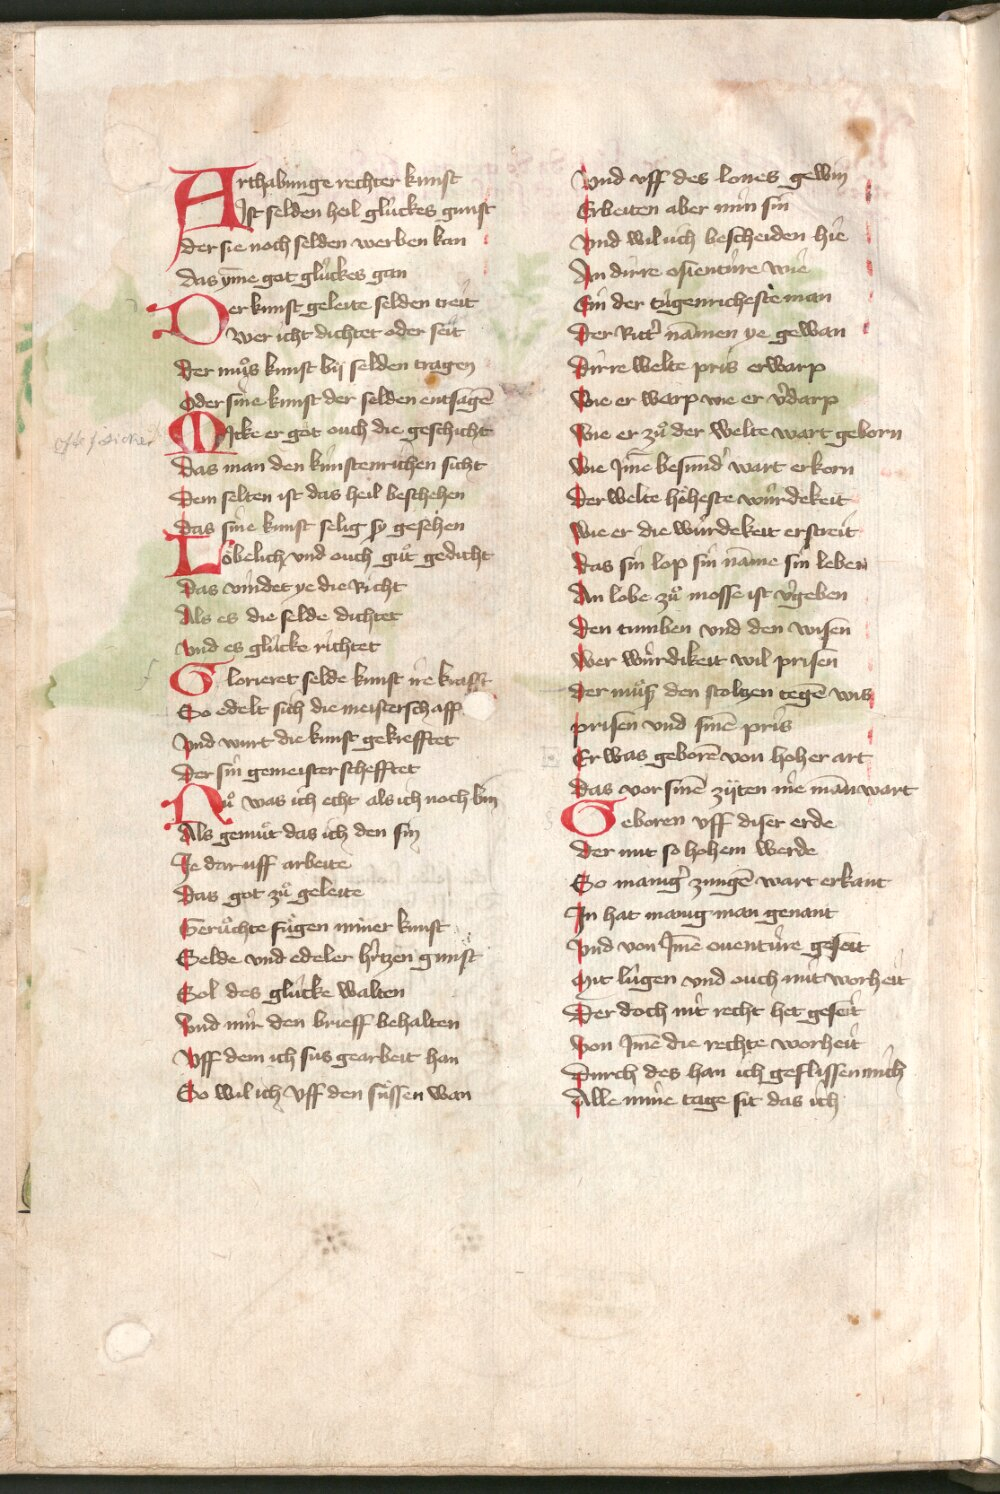 Arthabunge rechter kunst
Ist selden heil glückes gunst
Der sie noch selden werben kan
Das ẏme got glückes gan
Der kunst geleite selden treit
Wer icht dichtet oder seit
Der muͦs kunst bij selden tragen
Oder sine kunst der selden entsagē
Micke er got ouch die geschicht
Das man den künstenrichen sicht
Dem selten ist das heil beschehen
Das sine kunst selig sy gesehen
Löbelich vnd ouch guͦt gedicht
Das vindet ye die Richt
Als es die selde dichtet
Vnd es glücke richtet
Glorieret selde kunst ire krafft
So edelt sich die meisterschafft
Vnd wurt die kunst gekrefftet
Der sin gemeisterschefftet
Nuͦ was ich echt als ich noch bin
Als gemuͦt das ich den sin
Ie dar uff arbeite
Das got zuͦ geleite
Geruͦchte fuͤgen miner kunst
Selde vnd edeler hʳtzen gunst
Sol des glücke walten
Vnd mir den brieff behalten
Vff dem ich sus gearbeit han
So wil ich vff den suͤssen wan
Vnd vff des lones gewin
Erbeiten aber min sin
Vnd wil üch bescheiden hie
An dirre ofientüre wie
Ein der tugenricheste man
Der Rittʳ nāmen ye gewan
Dirre welte pris erwarp
Wie er warp wie er vʳdarp
Wie er zuͦ der welte wart geborn
Wie Jme besundʳ wart erkorn
Der welte höheste würdekeit
Wie er die würdekeit erstreit
Das sin lop sin nāme sin leben
An lobe zuͦ mosse ist vʳgeben
Den tumben vnd den wisen
Wer würdikeit wil prisen
Der muͦß den stoltzen tegē wis
prisen vnd sinē pris
Er was geborē von hoher art
Das vor sinē zijten nie mān wart
Geboren vff diser erde
Der mit so hohem werde
So manigʳ zungē wart erkant
In hat manig man genant
Vnd von Jmē ouentüre geseit
Mit lügen vnd ouch mit worheit
Der doch nit recht het geseit
Von Jmē die rechte worheit
Durch des han ich geflissen mich
Alle mine tage sit das ich